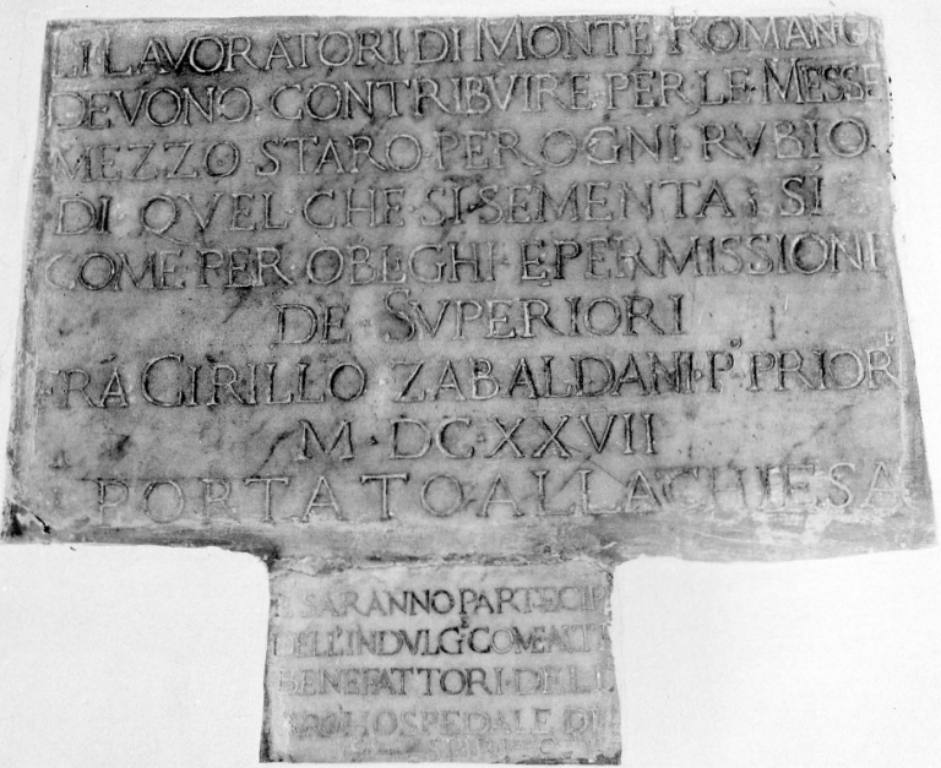 LI LAVORATORI·DI MONTE ROMANO
DEVONO·CONTRIBVIRE·PER·LE·MESSE
MEZZO·STARO·PER·OGNI·RVBIO
DI QVEL·CHE·SI·SEMENTA; SI
COME·PER·OBLGHI·E·PERMISSIONE
DE SVPERIORI
FRA CIRILLO ZABALDANI·P.º PRIORE
M·DC·XXVII
PORTATO ALLA CHIESA
E SARANNO PARTECIP
DELL'INDVLGE COME ALTR
BENEFATTORI·DELL
HOSPEDALE DI